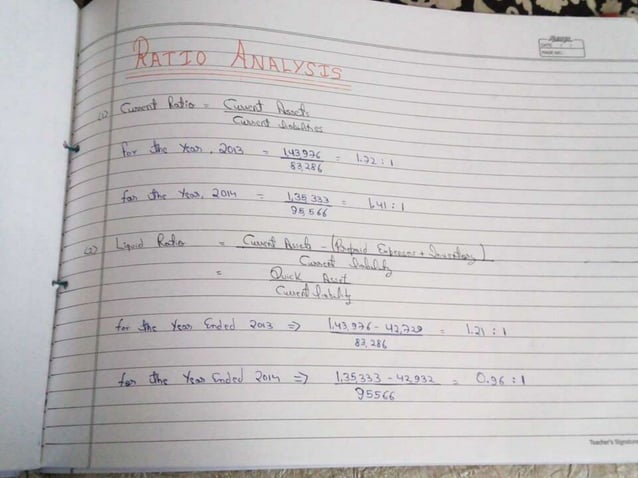 DATE
PAGE NO.
RATIO ANALYSIS
(1) Current Ratio = Current Assets
Current Liabilities
for the Year, 2013 = 1,43,976 = 1.72 : 1
83,286
for the Year, 2014 = 1,35,333 = 1.41 : 1
95,566
(2) Liquid Ratio = Current Assets - (Prepaid Expenses + Inventory)
Current Liability
= Quick Asset
Current Liability
for the Year Ended 2013 ⇒ 1,43,976 - 42,729 = 1.21 : 1
83,286
for the Year Ended 2014 ⇒ 1,35,333 - 42,932 = 0.96 : 1
95566
Teacher's Signature